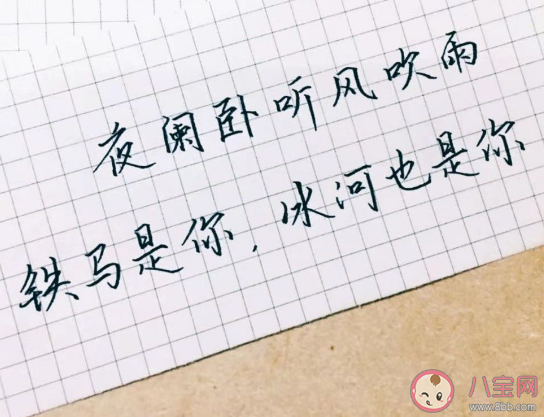 夜阑卧听风吹雨
铁马是你，冰河也是你
八宝网
www.8bb.com